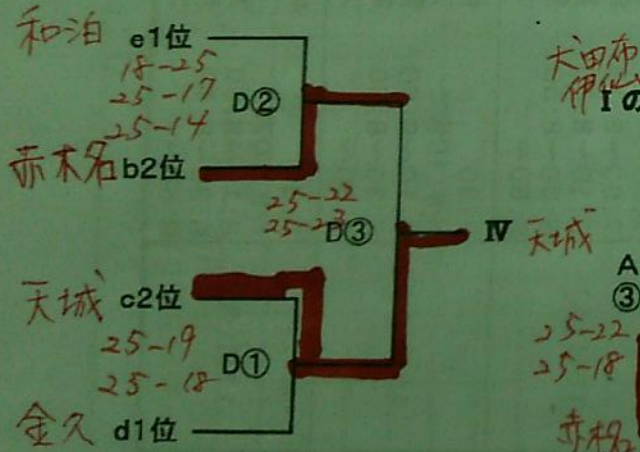 和泊 e1位
18-25
25-17 D②
25-14
赤木名 b2位
25-22
25-23 D③
Ⅳ 天城
天城 c2位
25-19
25-18 D①
金久 d1位
犬田布
伊仙 Ⅰの
A
③
25-22
25-18
赤木名